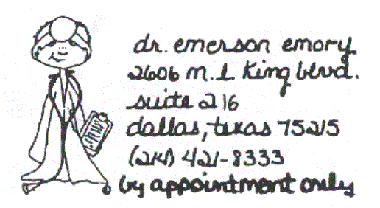 dr. emerson emory
2606 m. l king blvd.
suite 216
dallas, texas 75215
(214) 421-8333
by appointment only